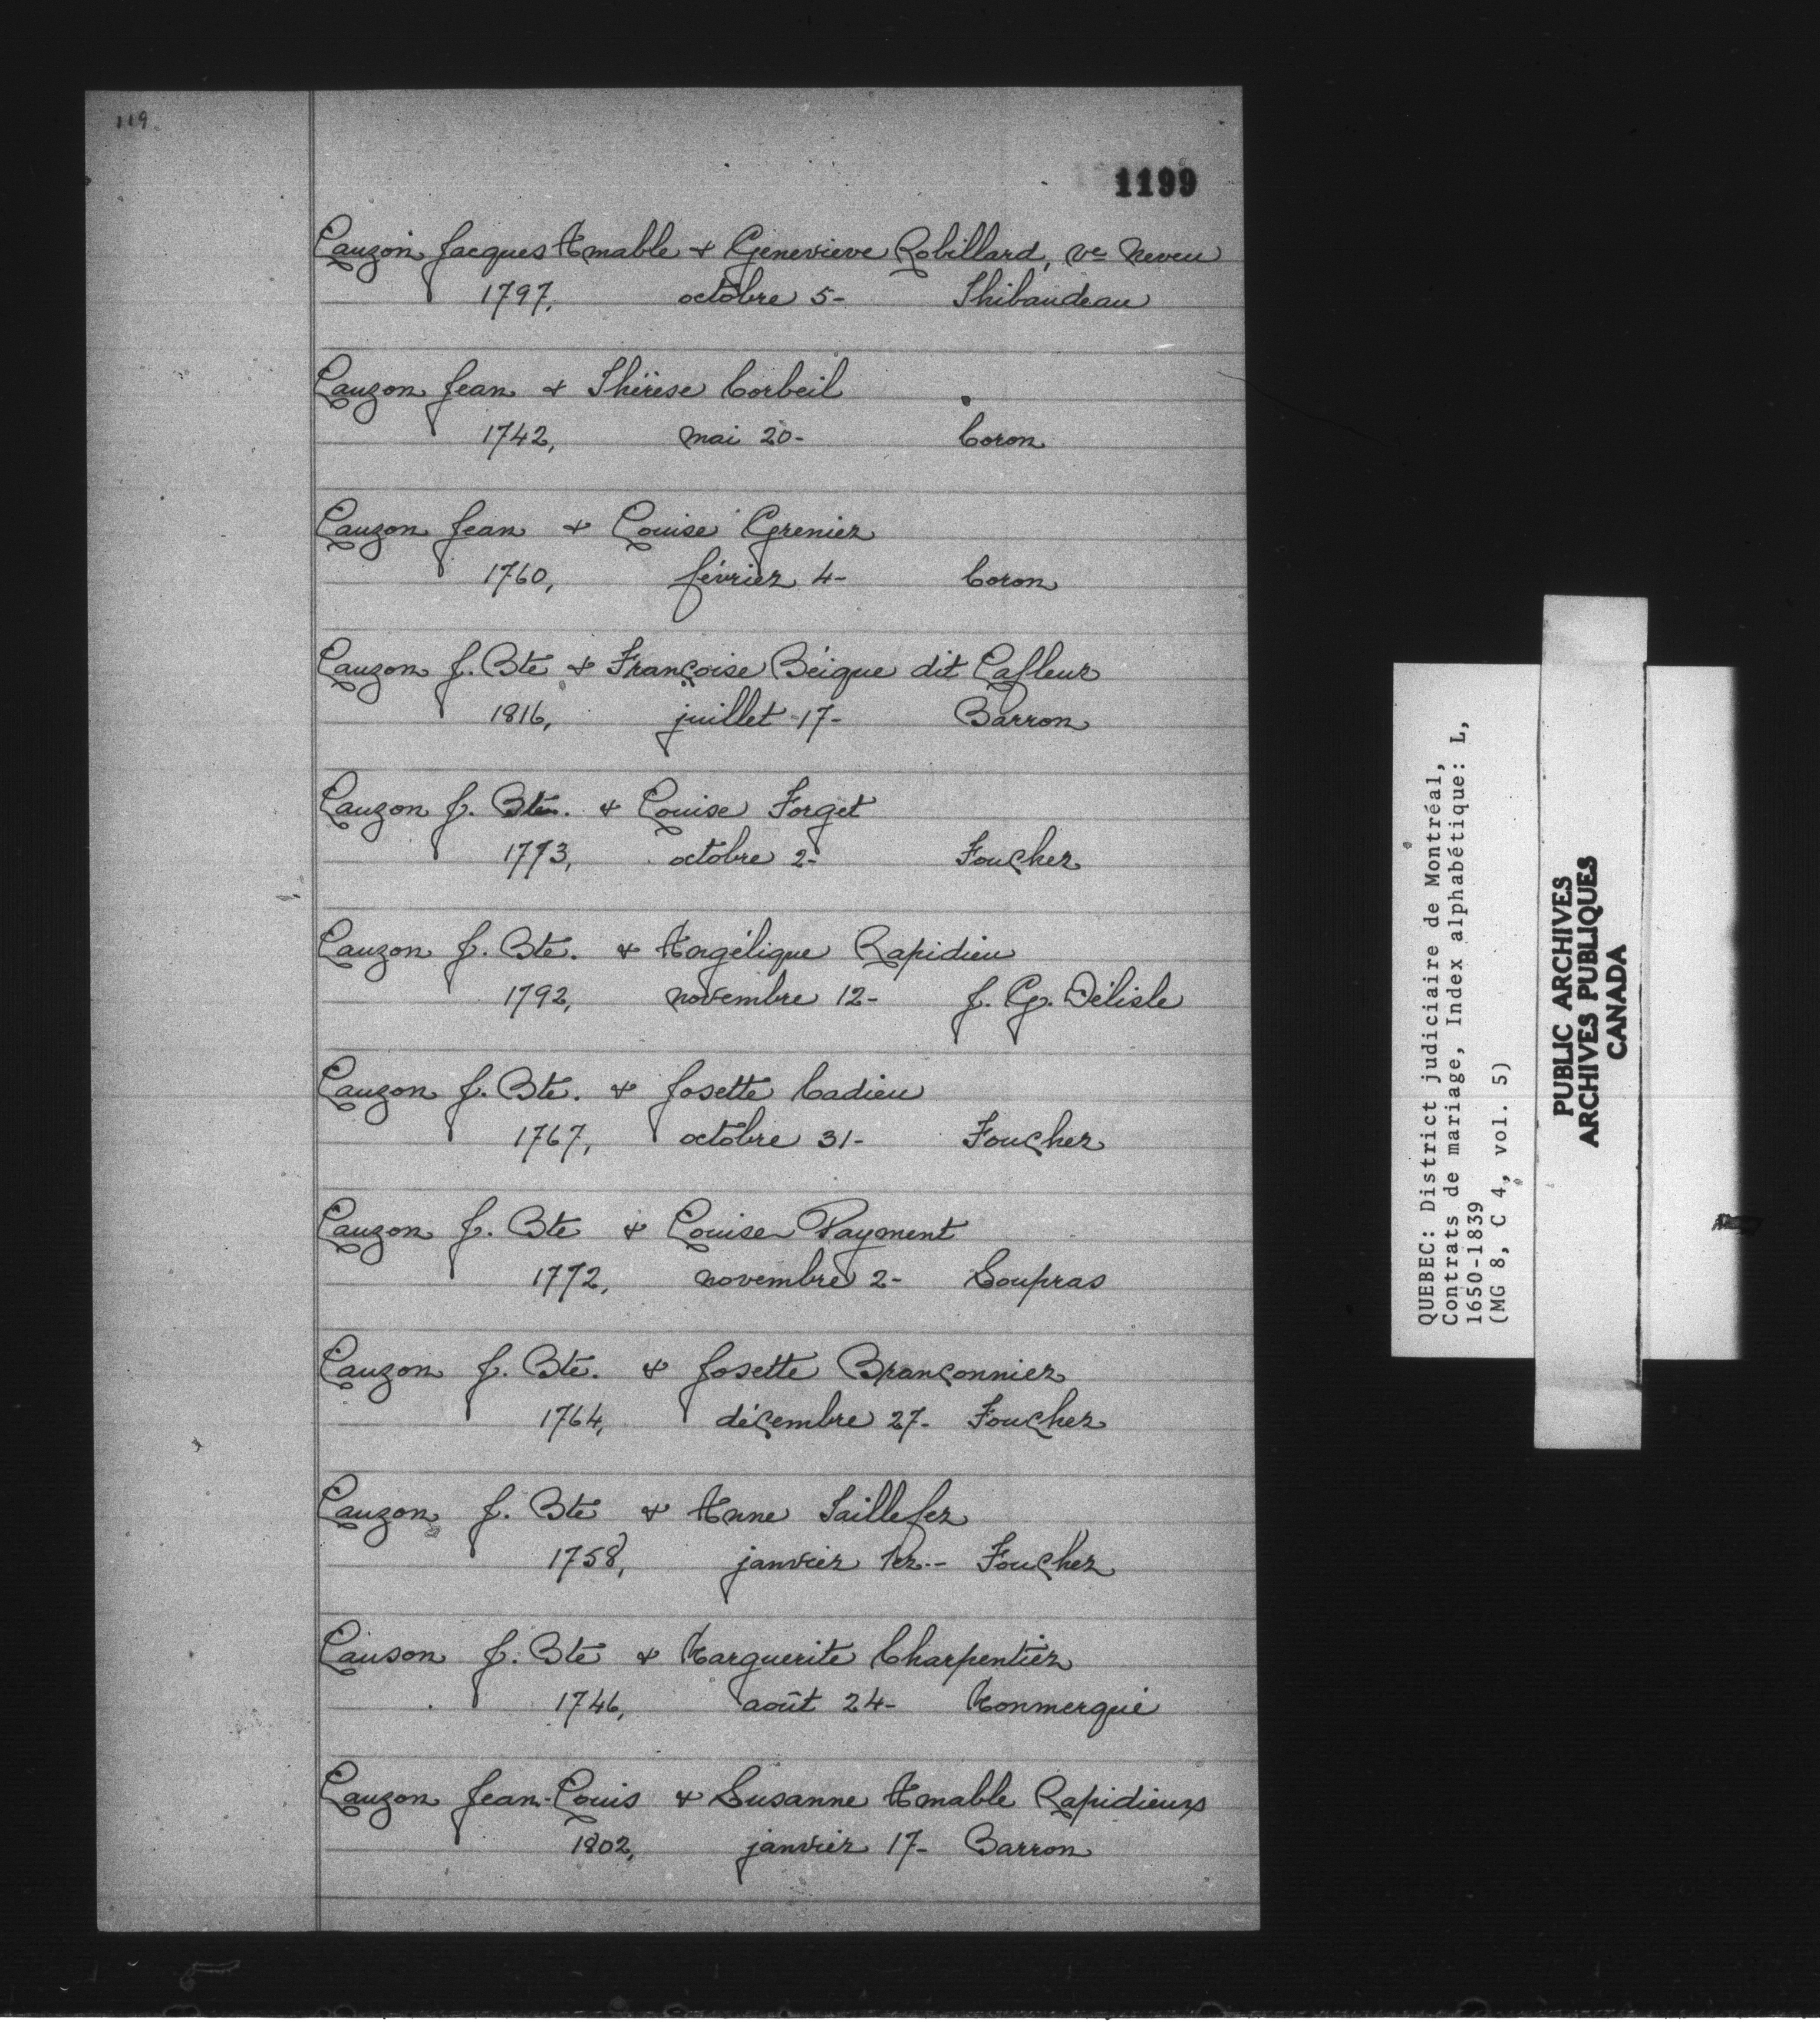 119.
1199
Lauzon Jacques Amable & Genevieve Robillard, ve Neveu
1797, octobre 5- Thibaudeau
Lauzon Jean & Thérèse Corbeil
1742, mai 20- Coron
Lauzon Jean & Louise Grenier
1760, février 4- Coron
Lauzon J. Bte & Françoise Béique dit Lafleur
1816, juillet 17- Barron
Lauzon J. Bte. & Louise Forget
1773, octobre 2- Foucher
Lauzon J. Bte. & Angélique Rapidieu
1792, novembre 12- J. G. Délisle
Lauzon J. Bte. & Josette Cadieu
1767, octobre 31- Foucher
Lauzon J. Bte & Louise Payment
1772, novembre 2- Soupras
Lauzon J. Bte. & Josette Brançonnier
1764, décembre 27- Foucher
Lauzon J. Bte & Anne Taillefer
1758, janvier 1er-- Foucher
Lauson J. Bte & Marguerite Charpentier
1746, août 24- Monmerqué
Lauzon Jean-Louis & Susanne Amable Rapidieux
1802, janvier 17- Barron
QUEBEC: District judiciaire de Montréal,
Contrats de mariage, Index alphabétique: L,
1650-1839
(MG 8, C 4, vol. 5)
PUBLIC ARCHIVES
ARCHIVES PUBLIQUES
CANADA